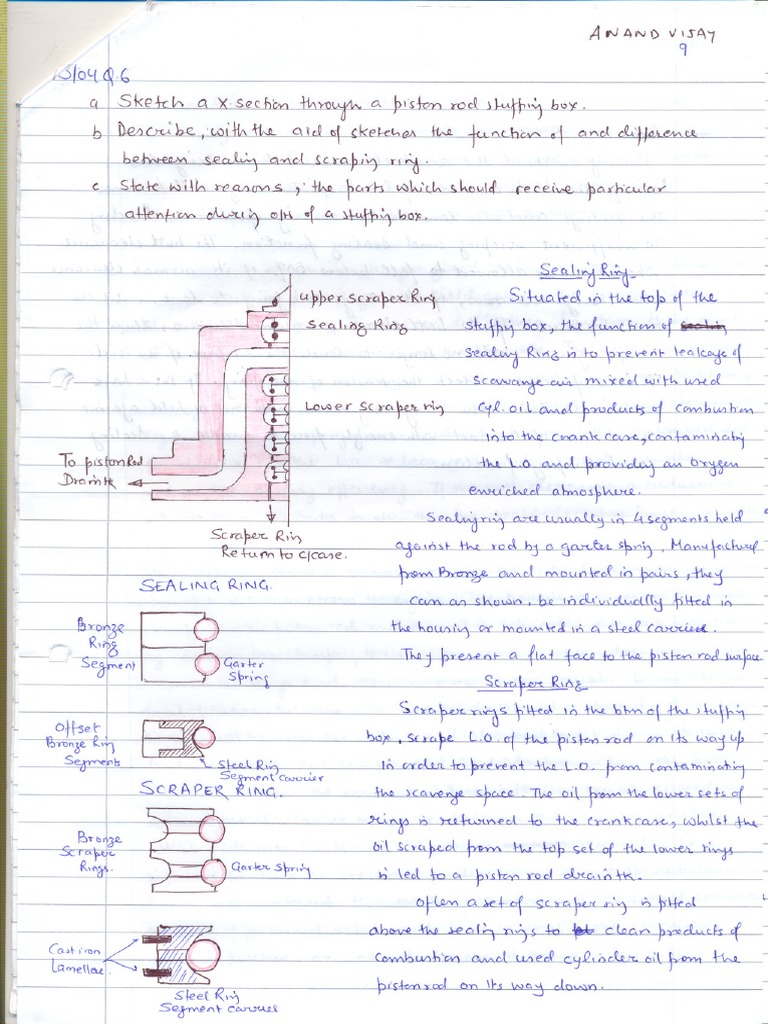 ANAND VIJAY
9
/04 Q.6
a Sketch a X section through a piston rod stuffing box.
b Describe, with the aid of sketches the function of and difference
between sealing and scraping ring.
c State with reasons, the parts which should receive particular
attention during o/h of a stuffing box.
Upper scraper Ring
Sealing Ring
Lower scraper ring
To piston Rod
Drain tk
Scraper Rin
Return to c/case.
Sealing Ring
Situated in the top of the
stuffing box, the function of
sealing Ring is to prevent leakage of
scavange air mixed with used
cyl. oil and products of combustion
into the crank case, contaminating
the L.O. and providing an oxygen
enriched atmosphere.
Sealing ring are usually in 4 segments held
against the rod by a garter spring. Manufactured
from Bronze and mounted in pairs, they
can as shown, be individually fitted in
the housing or mounted in a steel carrier.
They present a flat face to the piston rod surface
SEALING RING.
Bronze
Ring
Segment
Garter
Spring
Offset
Bronze Ring
Segments
Steel Ring
Segment carrier
SCRAPER RING.
Bronze
Scraper
Rings.
Garter Spring
Cast iron
Lamellae
Steel Ring
Segment carrier
Scraper Ring
Scraper rings fitted in the btm of the stuffing
box, scrape L.O. of the piston rod on its way up
in order to prevent the L.O. from contaminating
the scavenge space. The oil from the lower sets of
rings is returned to the crankcase, whilst the
oil scraped from the top set of the lower rings
is led to a piston rod drain tk.
Often a set of scraper ring is fitted
above the sealing rings to clean products of
combustion and used cylinder oil from the
piston rod on its way down.